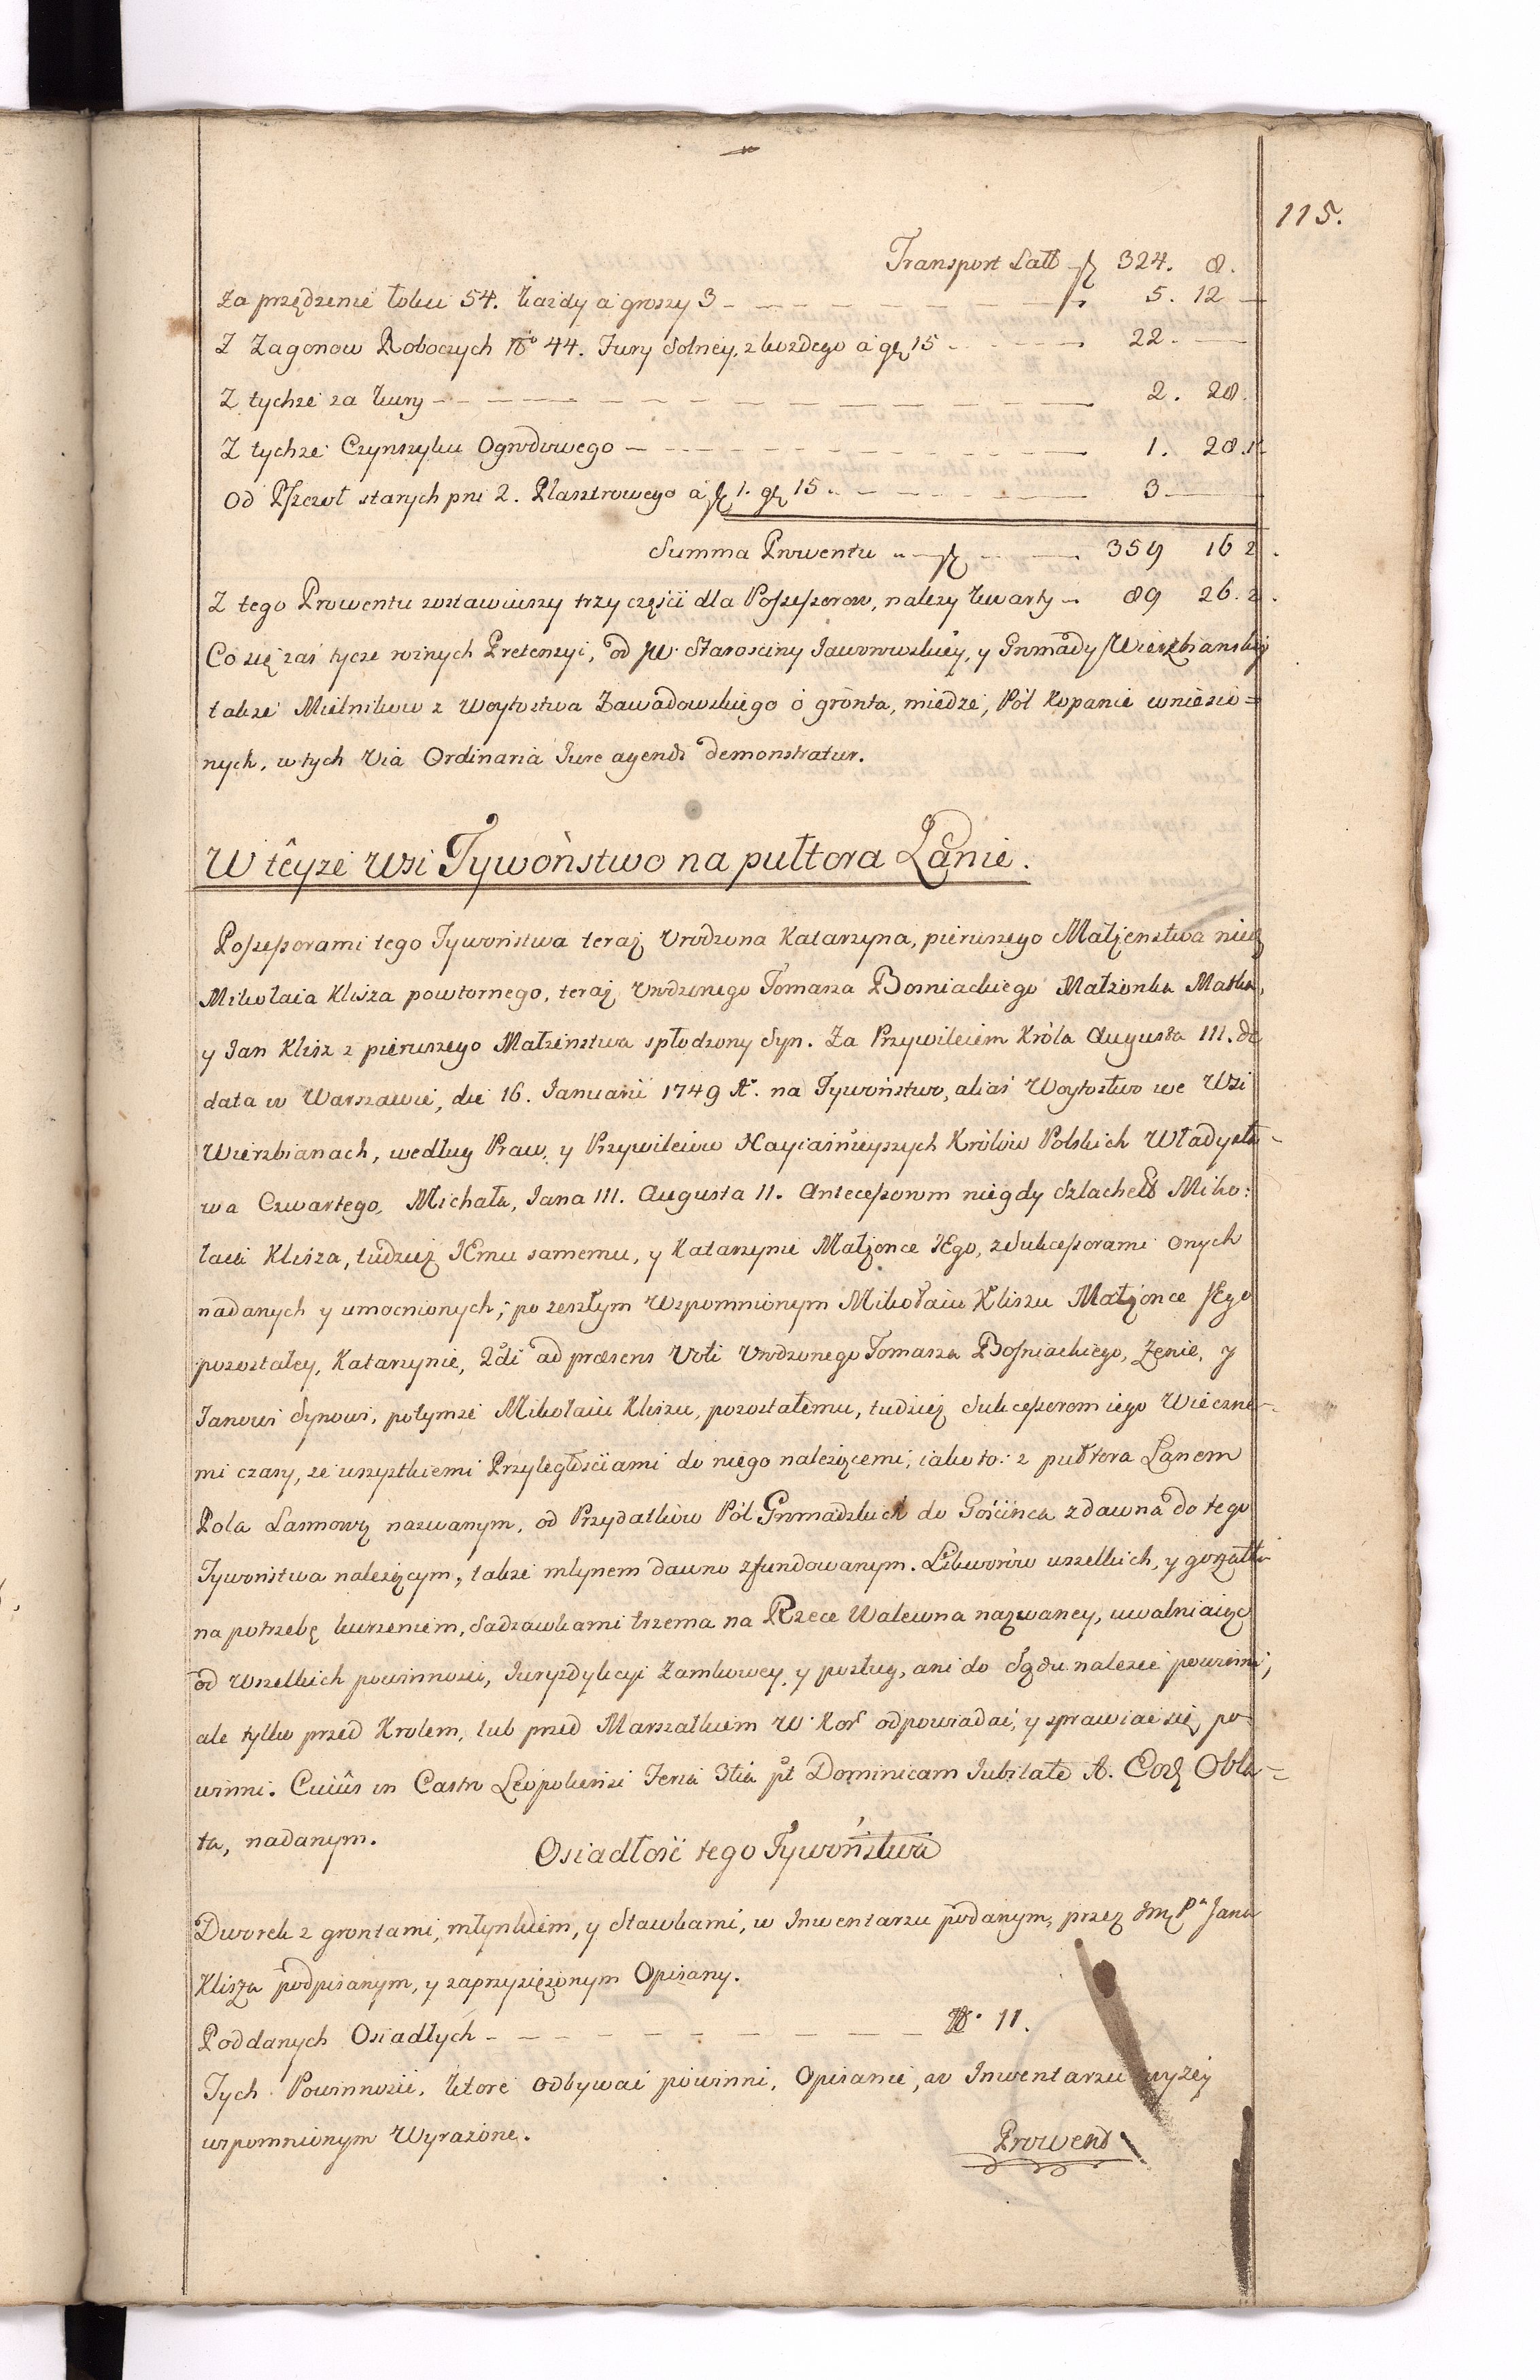 115.
Transport Latt fl 324. 8.
Za przędzenie łoku 54. każdy a groszy 3 5. 12
Z Zagonow Roboczych No 44. Fury Solney, z każdego a gr 15 22.
Z tychże za kury 2. 28.
Z tychże Czynszyku Ogrodowego 1. 28.
Od Pszczoł starych pni 2. Plastrowego a fl 1. gr 15 3
Summa Prowentu fl 359 16 2.
Z tego Prowentu zostawiwszy trzy części dla Possessorow, należy kwarty 89 26. 2.
Co się zaś tycze rożnych Pretensyi, od JW. Starosciny Jaworowskiey, y Gromady Wierzbianskiey
także Mielnikow z Woytostwa Zawadowskiego o gronta, miedze, Pól kopanie wniesio=
nych, w tych Via Ordinaria Jure agendi demonstratur.
W teyże Wsi Tywoństwo na pułtora Łanie.
Possessorami tego Tywoństwa teraz Urodzona Katarzyna, pierwszego Małżenstwa niegdy
Mikołaia Klisza powtornego, teraz Urodzonego Tomasza Bosniackiego Małżonka Matka,
y Jan Klisz z pierwszego Małżenstwa spłodzony Syn. Za Przywileiem Króla Augusta III. de
data w Warszawie, die 16. Januarii 1749 Ao. na Tywoństwo, alias Woytostwo we Wsi
Wierzbianach, według Praw, y Przywileiow Nayiaśnieyszych Królów Polskich Władysła-
wa Czwartego, Michała, Jana III. Augusta II. Antecessorom niegdy Szlachett Miko:
łaia Klisza, tudzież JEmu samemu, y Katarzynie Małżonce JEgo, z Sukcessorami onych
nadanych y umocnionych; po zeszłym Wspomnionym Mikołaiu Kliszu Małżonce JEgo
pozostałey, Katarzynie, 2di ad præsens Voti Urodzonego Tomasza Bosniackiego, Żenie, y
Janowi Synowi, potymże Mikołaiu Kliszu, pozostałemu, tudzież Sukcessorom iego Wieczne-
mi czasy, ze wszystkiemi Przyległościami do niego należącemi, iako to: z pułtora Łanem
Pola Łannowy nazwanym, od Przydatków Pól Gromadzkich do Gościńca zdawna do tego
Tywoństwa należącym, także młynem dawno zfundowanym. Likworów wszelkich, y gorzałki
na potrzebę kurzeniem, Sadzawkami trzema na Rzece Walewna nazwaney, uwalniaiąc
od Wszelkich powinnosci, Juryzdykcyi Zamkowey y posług, ani do Sądu należec powinni,
ale tylko przed Krolem, lub przed Marszałkiem W. Kor odpowiadać, y sprawiac się po-
winni. Cuiûs in Castro Leopoliensi Feria 3tia pt Dominicam Jubilate A. Eod Obla=
ta, nadanym.
Osiadłość tego Tywoństwa
Dworek z grontami, młynkiem, y Stawkami, w Inwentarzu podanym, przez Jmć Pa Jana
Klisza podpisanym, y zaprzysiężonym Opisany.
Poddanych Osiadłych No. 11.
Tych Powinności, ktore odbywać powinni, Opisanie, w Inwentarzu wyżey
wspomnionym Wyrażone.
Prowent